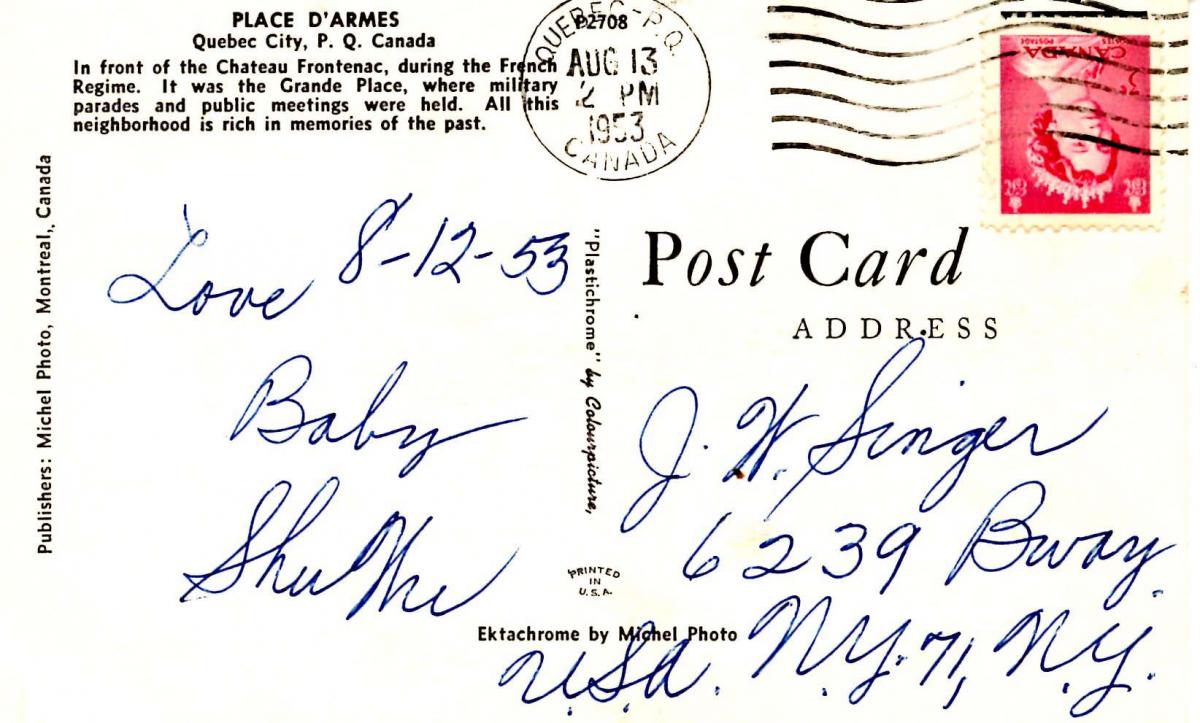 PLACE D'ARMES
Quebec City, P. Q. Canada
In front of the Chateau Frontenac, during the French
Regime. It was the Grande Place, where military
parades and public meetings were held. All this
neighborhood is rich in memories of the past.
P2708
QUEBEC-P.Q.
AUG 13
2 PM
1953
CANADA
CANADA
POSTAGE POSTES
3¢
Publishers: Michel Photo, Montreal, Canada
8-12-53
Love
Baby
"Plastichrome" by Colourpicture,
PRINTED
IN
U.S.A.
Ektachrome by Michel Photo
Post Card
ADDRESS
J. W. Singer
6239 Bway.
N.Y. 71, N.Y.
U.S.A.